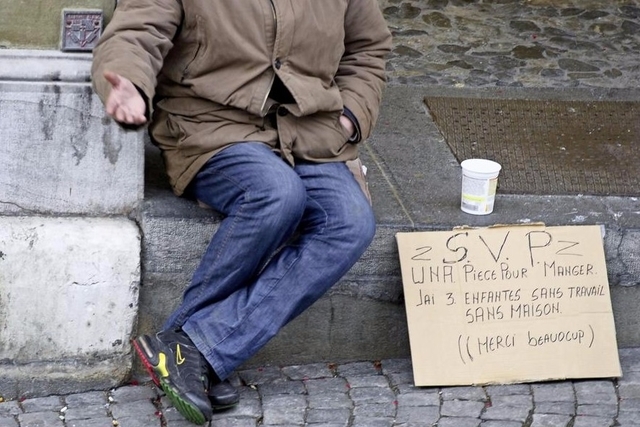 S.V.P
UNA PIECE POUR MANGER.
JAI 3 ENFANTES SANS TRAVAIL
SANS MAISON.
((MERCI beAUCOUP)